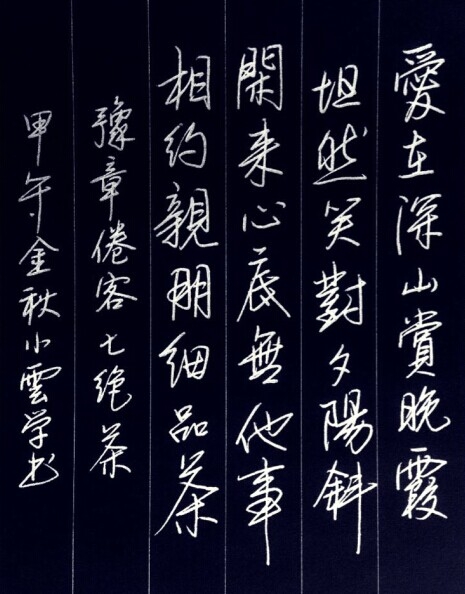 愛在深山賞晚霞
坦然笑對夕陽斜
閑来心底無他事
相約親朋細品茶
豫章倦客七绝茶
甲午金秋小雲学书